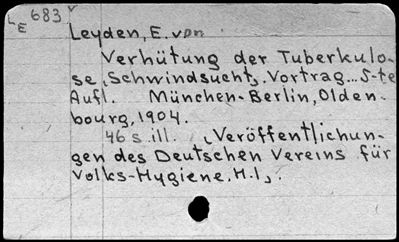 L E 683
Leyden, E. von
Verhütung der Tuberkulo-
se (Schwindsucht). Vortrag... 5-te
Aufl. München-Berlin, Olden-
bourg, 1904.
46 s. ill. (Veröffentlichun-
gen des Deutschen Vereins für
Volks-Hygiene. H. I).